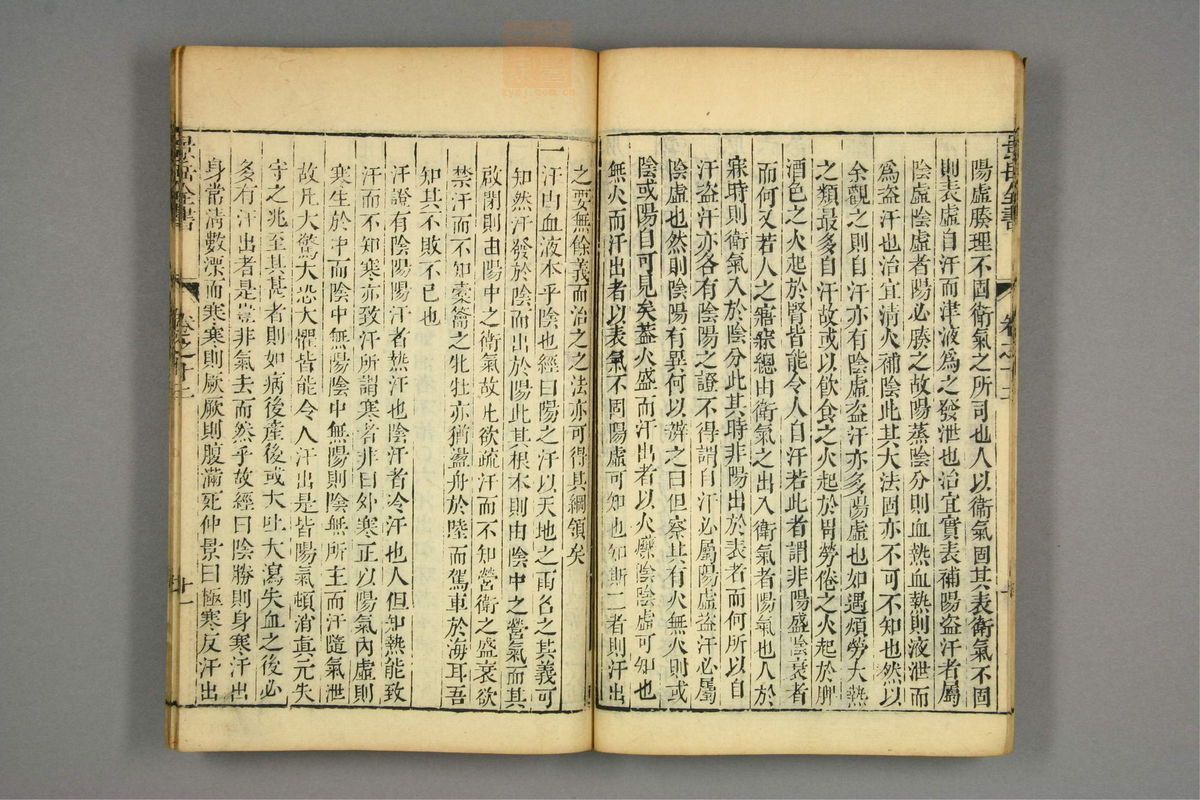 景岳全書
卷之十二
陽虛腠理不固衛氣之所司也人以衛氣固其表衛氣不固
則表虛自汗而津液為之發泄也治宜實表補陽盜汗者屬
陰虛陰虛者陽必勝之故陽蒸陰分則血熱血熱則液泄而
為盜汗也治宜清火補陰此其大法固亦不可不知也然以
余觀之則自汗亦有陰虛盜汗亦多陽虛也如遇煩勞大熱
之類最多自汗故或以飲食之火起於胃勞倦之火起於脾
酒色之火起於腎皆能令人自汗若此者謂非陽盛陰衰者
而何又若人之寤寐總由衛氣之出入衛氣者陽氣也人於
寐時則衛氣入於陰分此其時非陽出於表者而何所以自
汗盜汗亦各有陰陽之證不得謂自汗必屬陽虛盜汗必屬
陰虛也然則陰陽有異何以辨之曰但察其有火無火則或
陰或陽自可見矣蓋火盛而汗出者以火爍陰陰虛可知也
無火而汗出者以表氣不固陽虛可知也知斯二者則汗出
之要無餘義而治之之法亦可得其綱領矣
一汗由血液本乎陰也經曰陽之汗以天地之雨名之其義可
知然汗發於陰而出於陽此其根本則由陰中之營氣而其
啟閉則由陽中之衛氣故凡欲疏汗而不知營衛之盛衰欲
禁汗而不知橐籥之牝牡亦猶盪舟於陸而駕車於海耳吾
知其不敗不已也
汗證有陰陽陽汗者熱汗也陰汗者冷汗也人但知熱能致
汗而不知寒亦致汗所謂寒者非曰外寒正以陽氣內虛則
寒生於中而陰中無陽陰中無陽則陰無所主而汗隨氣泄
故凡大驚大恐大懼皆能令人汗出是皆陽氣頓消真元失
守之兆至其甚者則如病後產後或大吐大瀉失血之後必
多有汗出者是豈非氣去而然乎故經曰陰勝則身寒汗出
身常清數慄而寒寒則厥厥則腹滿死仲景曰極寒反汗出
景岳全書
卷之十二
廿一